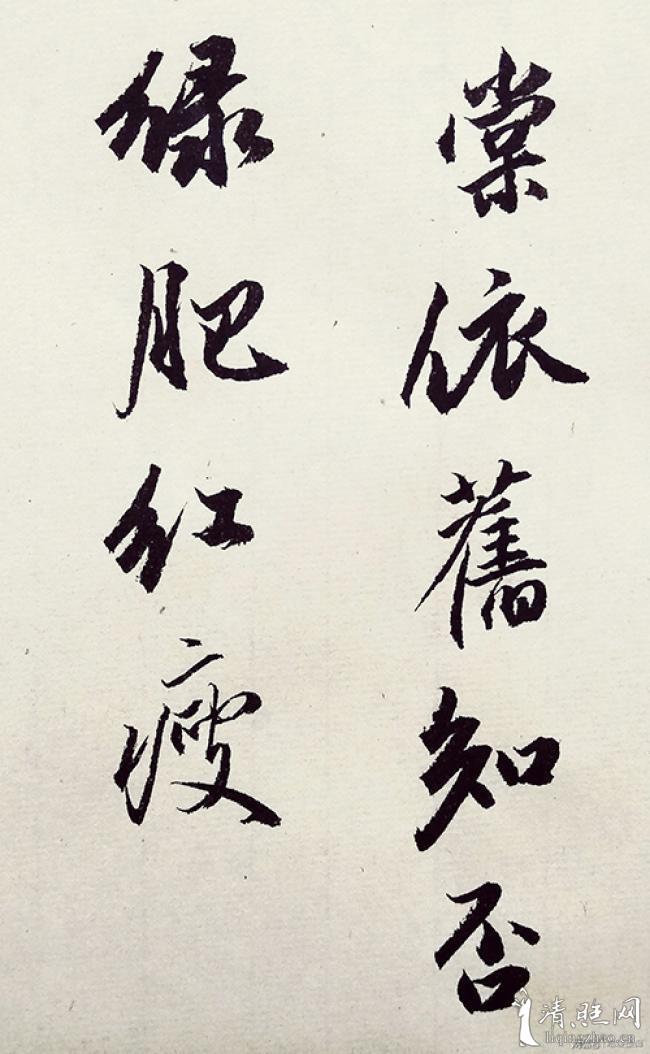 棠依舊知否
绿肥红瘦
清照网
liqingzhao.cn